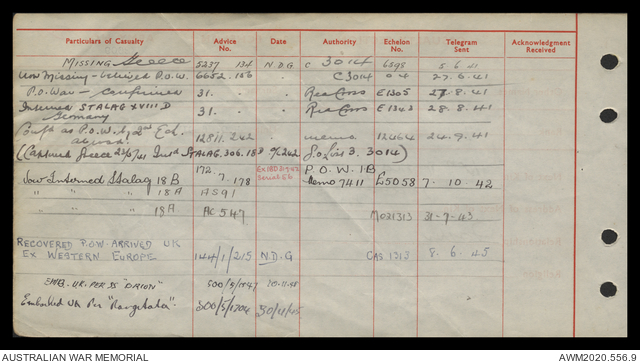 Particulars of Casualty Advice No. Date Authority Echelon No. Telegram Sent Acknowledgment Received
MISSING Greece 5237 134 N.D.G C 3014 6398 5.6.41
Now Missing - believed P.O.W. 6652.156 C3014 04 27.6.41
P.O.War - Confirmed 31. Red Cross E1305 27.8.41
Interned STALAG XVIII D 31. Red Cross E1343 28.8.41
Germany
as P.O.W. by 2nd Ech. 12811.242 memo 12464 24.9.41
abroad.
(Captured Greece STALAG. 306. 18D 3. 3014)
172. P.O.W. 1B
Now Interned Stalag 18B 7.178 Memo 7411 E5058 7. 10. 42
" " " 18A A591
" " " 18A AC 547 M021313 31-7-43
RECOVERED P.O.W. ARRIVED UK
EX WESTERN EUROPE 144/1/215 N.D.G CAS 1213 8. 6. 45
EMB. UK. PER SS "ORION" 500/5/1547
Embarked UK Per "Rangitata" 500/5/1704 30/11/45
AUSTRALIAN WAR MEMORIAL AWM2020.556.9